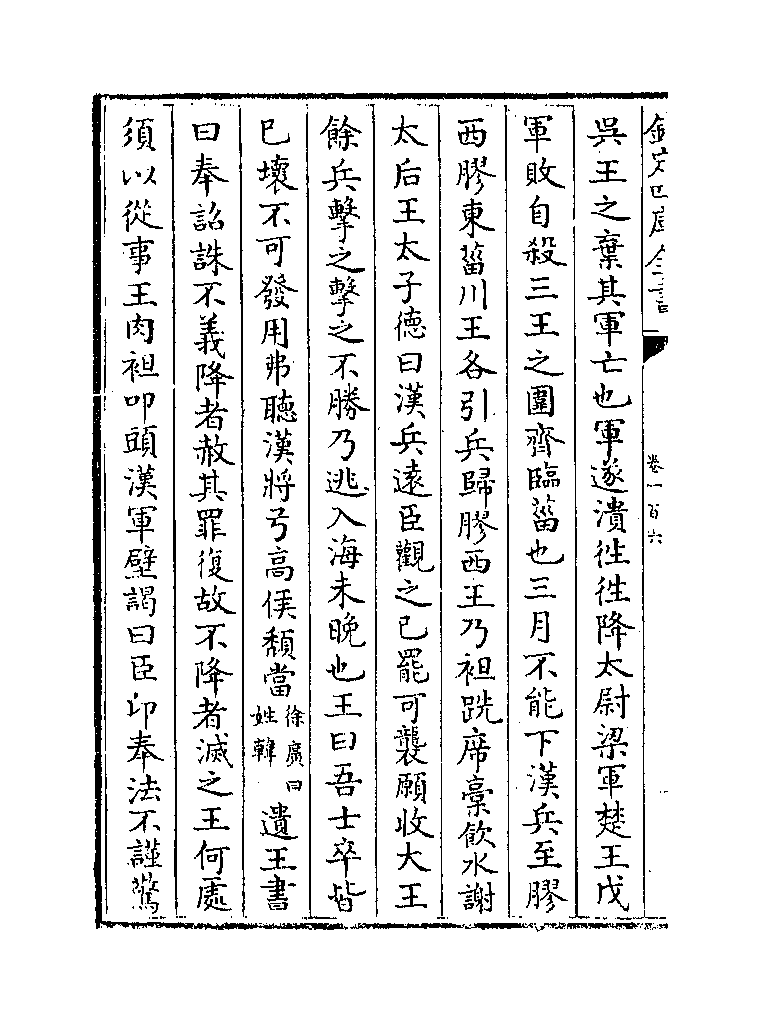 欽定四庫全書
卷一百六
吳王之棄其軍亡也軍遂潰徃徃降太尉梁軍楚王戊
軍敗自殺三王之圍齊臨菑也三月不能下漢兵至膠
西膠東菑川王各引兵歸膠西王乃袒跣席藁飲水謝
太后王太子德曰漢兵遠臣觀之已罷可襲願收大王
餘兵擊之擊之不勝乃逃入海未晚也王曰吾士卒皆
已壞不可發用弗聽漢將弓高侯頽當徐廣曰姓韓遺王書
曰奉詔誅不義降者赦其罪復故不降者滅之王何處
須以從事王肉袒叩頭漢軍壁謁曰臣卬奉法不謹驚